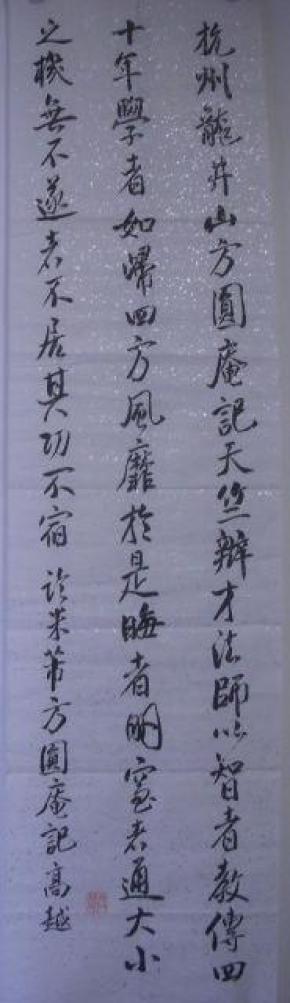 杭州龍井山方圓庵記天竺辯才法師以智者教傳四
十年學者如歸四方風靡於是晦者明窒者通大小
之機無不遂者不居其功不宿 於米芾方圓庵記高越